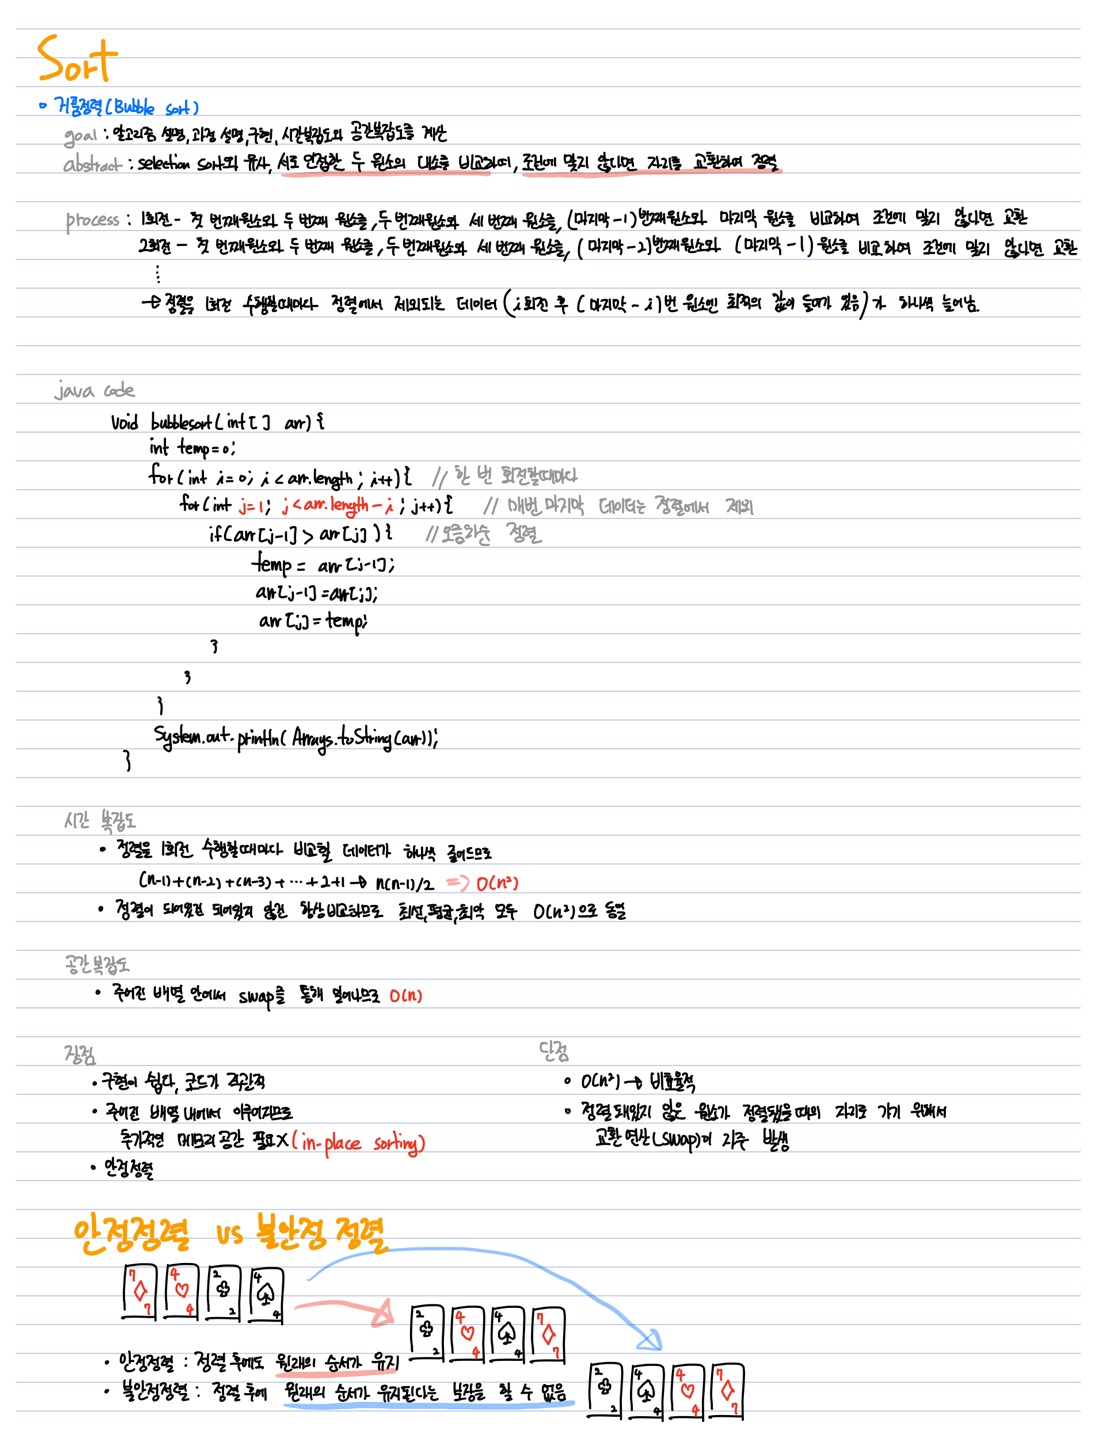 Sort
거품정렬(Bubble sort)
goal : 알고리즘 설명, 과정 설명, 구현, 시간복잡도와 공간복잡도를 계산
abstract : selection sort와 유사, 서로 인접한 두 원소의 대소를 비교하여, 조건에 맞지 않다면 자리를 교환하여 정렬
process : 1회전 - 첫 번째원소와 두 번째 원소를, 두 번째원소와 세 번째 원소를, (마지막-1)번째원소와 마지막 원소를 비교하여 조건에 맞지 않다면 교환
2회전 - 첫 번째원소와 두 번째 원소를, 두 번째원소와 세 번째 원소를, (마지막-2)번째원소와 (마지막-1)원소를 비교하여 조건에 맞지 않다면 교환
⋮
→ 정렬은 1회전 수행할때마다 정렬에서 제외되는 데이터 (i회전 후 (마지막-i)번 원소엔 최적의 값이 들어가 있음)가 하나씩 늘어남
java code
void bubblesort(int[] arr){
int temp=0;
for(int i=0; i<arr.length; i++){ // 한 번 회전할때마다
for(int j=1; j<arr.length-i; j++){ // 매번 마지막 데이터는 정렬에서 제외
if(arr[j-1] > arr[j]){ //오름차순 정렬
temp = arr[j-1];
arr[j-1]=arr[j];
arr[j]=temp;
}
}
}
System.out.println(Arrays.toString(arr));
}
시간 복잡도
• 정렬을 1회전 수행할때마다 비교할 데이터가 하나씩 줄어드므로
(n-1)+(n-2)+(n-3)+⋯+2+1 → n(n-1)/2 => O(n²)
• 정렬이 되어있건 되어있지 않건 항상비교하므로 최선,평균,최악 모두 O(n²)으로 동일
공간복잡도
• 주어진 배열 안에서 swap을 통해 일어나므로 O(n)
장점
• 구현이 쉽다, 코드가 직관적
• 주어진 배열 내에서 이루어지므로
추가적인 메모리 공간 필요X (in-place sorting)
• 안정정렬
단점
• O(n²) → 비효율적
• 정렬 돼있지 않은 원소가 정렬됐을때의 자리로 가기 위해서
교환 연산(swap)이 자주 발생
안정정렬 vs 불안정 정렬
7 7 4 4 2 2 4 4
2 2 4 4 4 4 7 7
• 안정정렬 : 정렬 후에도 원래의 순서가 유지
• 불안정정렬 : 정렬 후에 원래의 순서가 유지된다는 보장을 할 수 없음
2 2 4 4 4 4 7 7